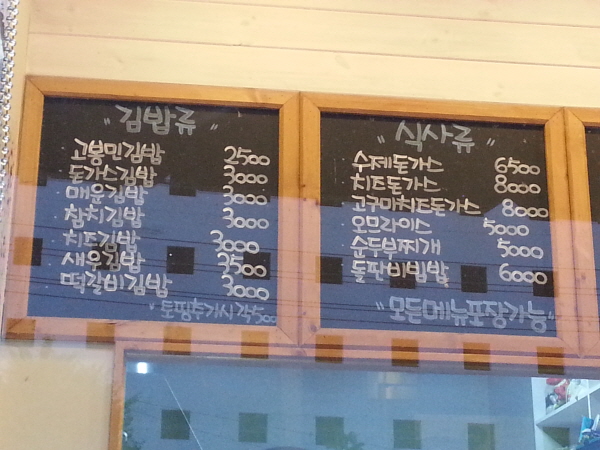 " 김밥류 "
고봉민김밥 2500
돈가스김밥 3000
매운김밥 3000
참치김밥 3000
치즈김밥 3000
새우김밥 3500
떡갈비김밥 3000
"토핑추가시 각500
" 식사류 "
수제돈가스 6500
치즈돈가스 8000
고구마치즈돈가스 8000
오므라이스 5000
순두부찌개 5000
돌판비빔밥 6000
"모든메뉴포장가능"